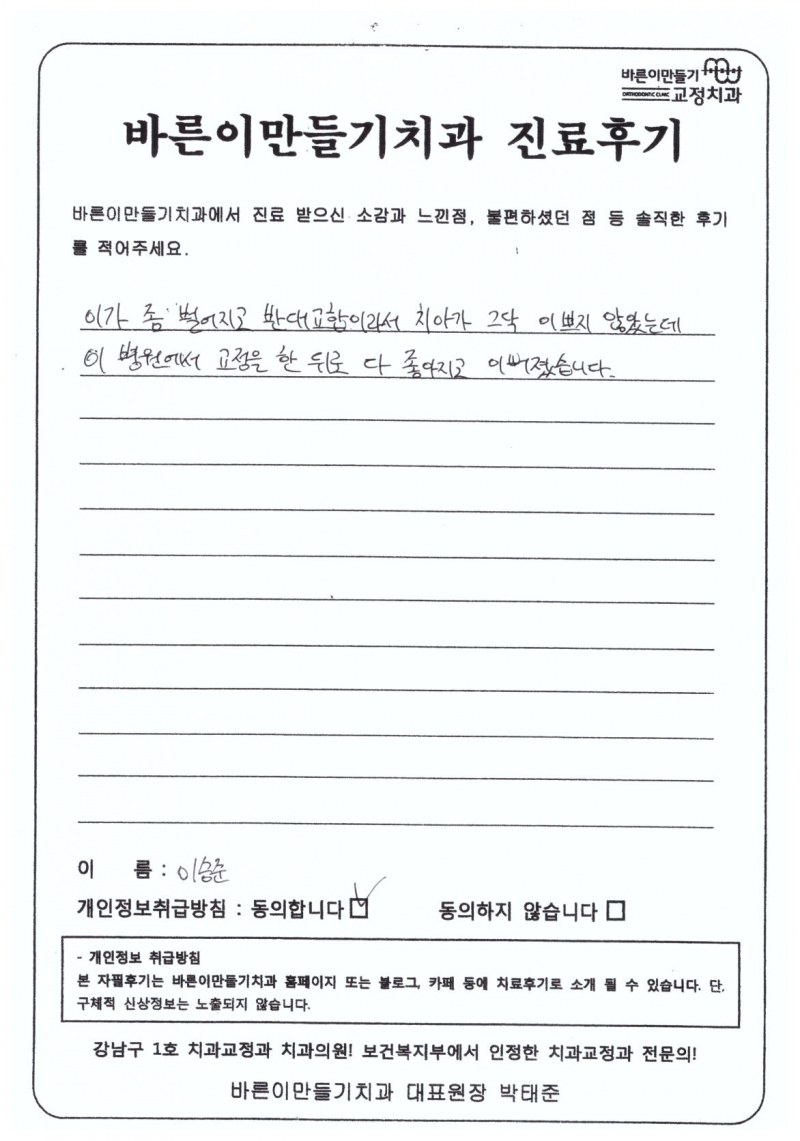 바른이만들기
ORTHODONTIC CLINIC 교정치과
바른이만들기치과 진료후기
바른이만들기치과에서 진료 받으신 소감과 느낀점, 불편하셨던 점 등 솔직한 후기
를 적어주세요.
이가 좀 벌어지고 반대교합이라서 치아가 그닥 이쁘지 않았는데
이 병원에서 교정을 한 뒤로 다 좋아지고 이뻐졌습니다.
이 름 : 이승준
개인정보취급방침 : 동의합니다 동의하지 않습니다
- 개인정보 취급방침
본 자필후기는 바른이만들기치과 홈페이지 또는 블로그, 카페 등에 치료후기로 소개 될 수 있습니다. 단,
구체적 신상정보는 노출되지 않습니다.
강남구 1호 치과교정과 치과의원! 보건복지부에서 인정한 치과교정과 전문의!
바른이만들기치과 대표원장 박태준